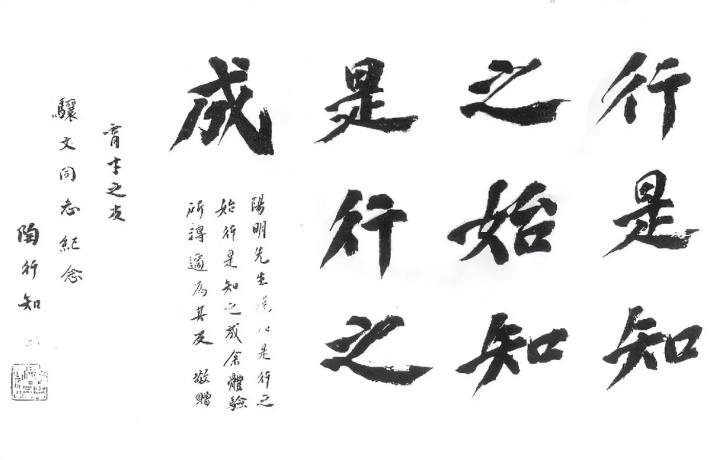 行是知
之始知
是行之
成
陽明先生 是行之
始行是知之成余體驗
所得適為其反 敬贈
育才之友
驤文同志紀念
陶行知